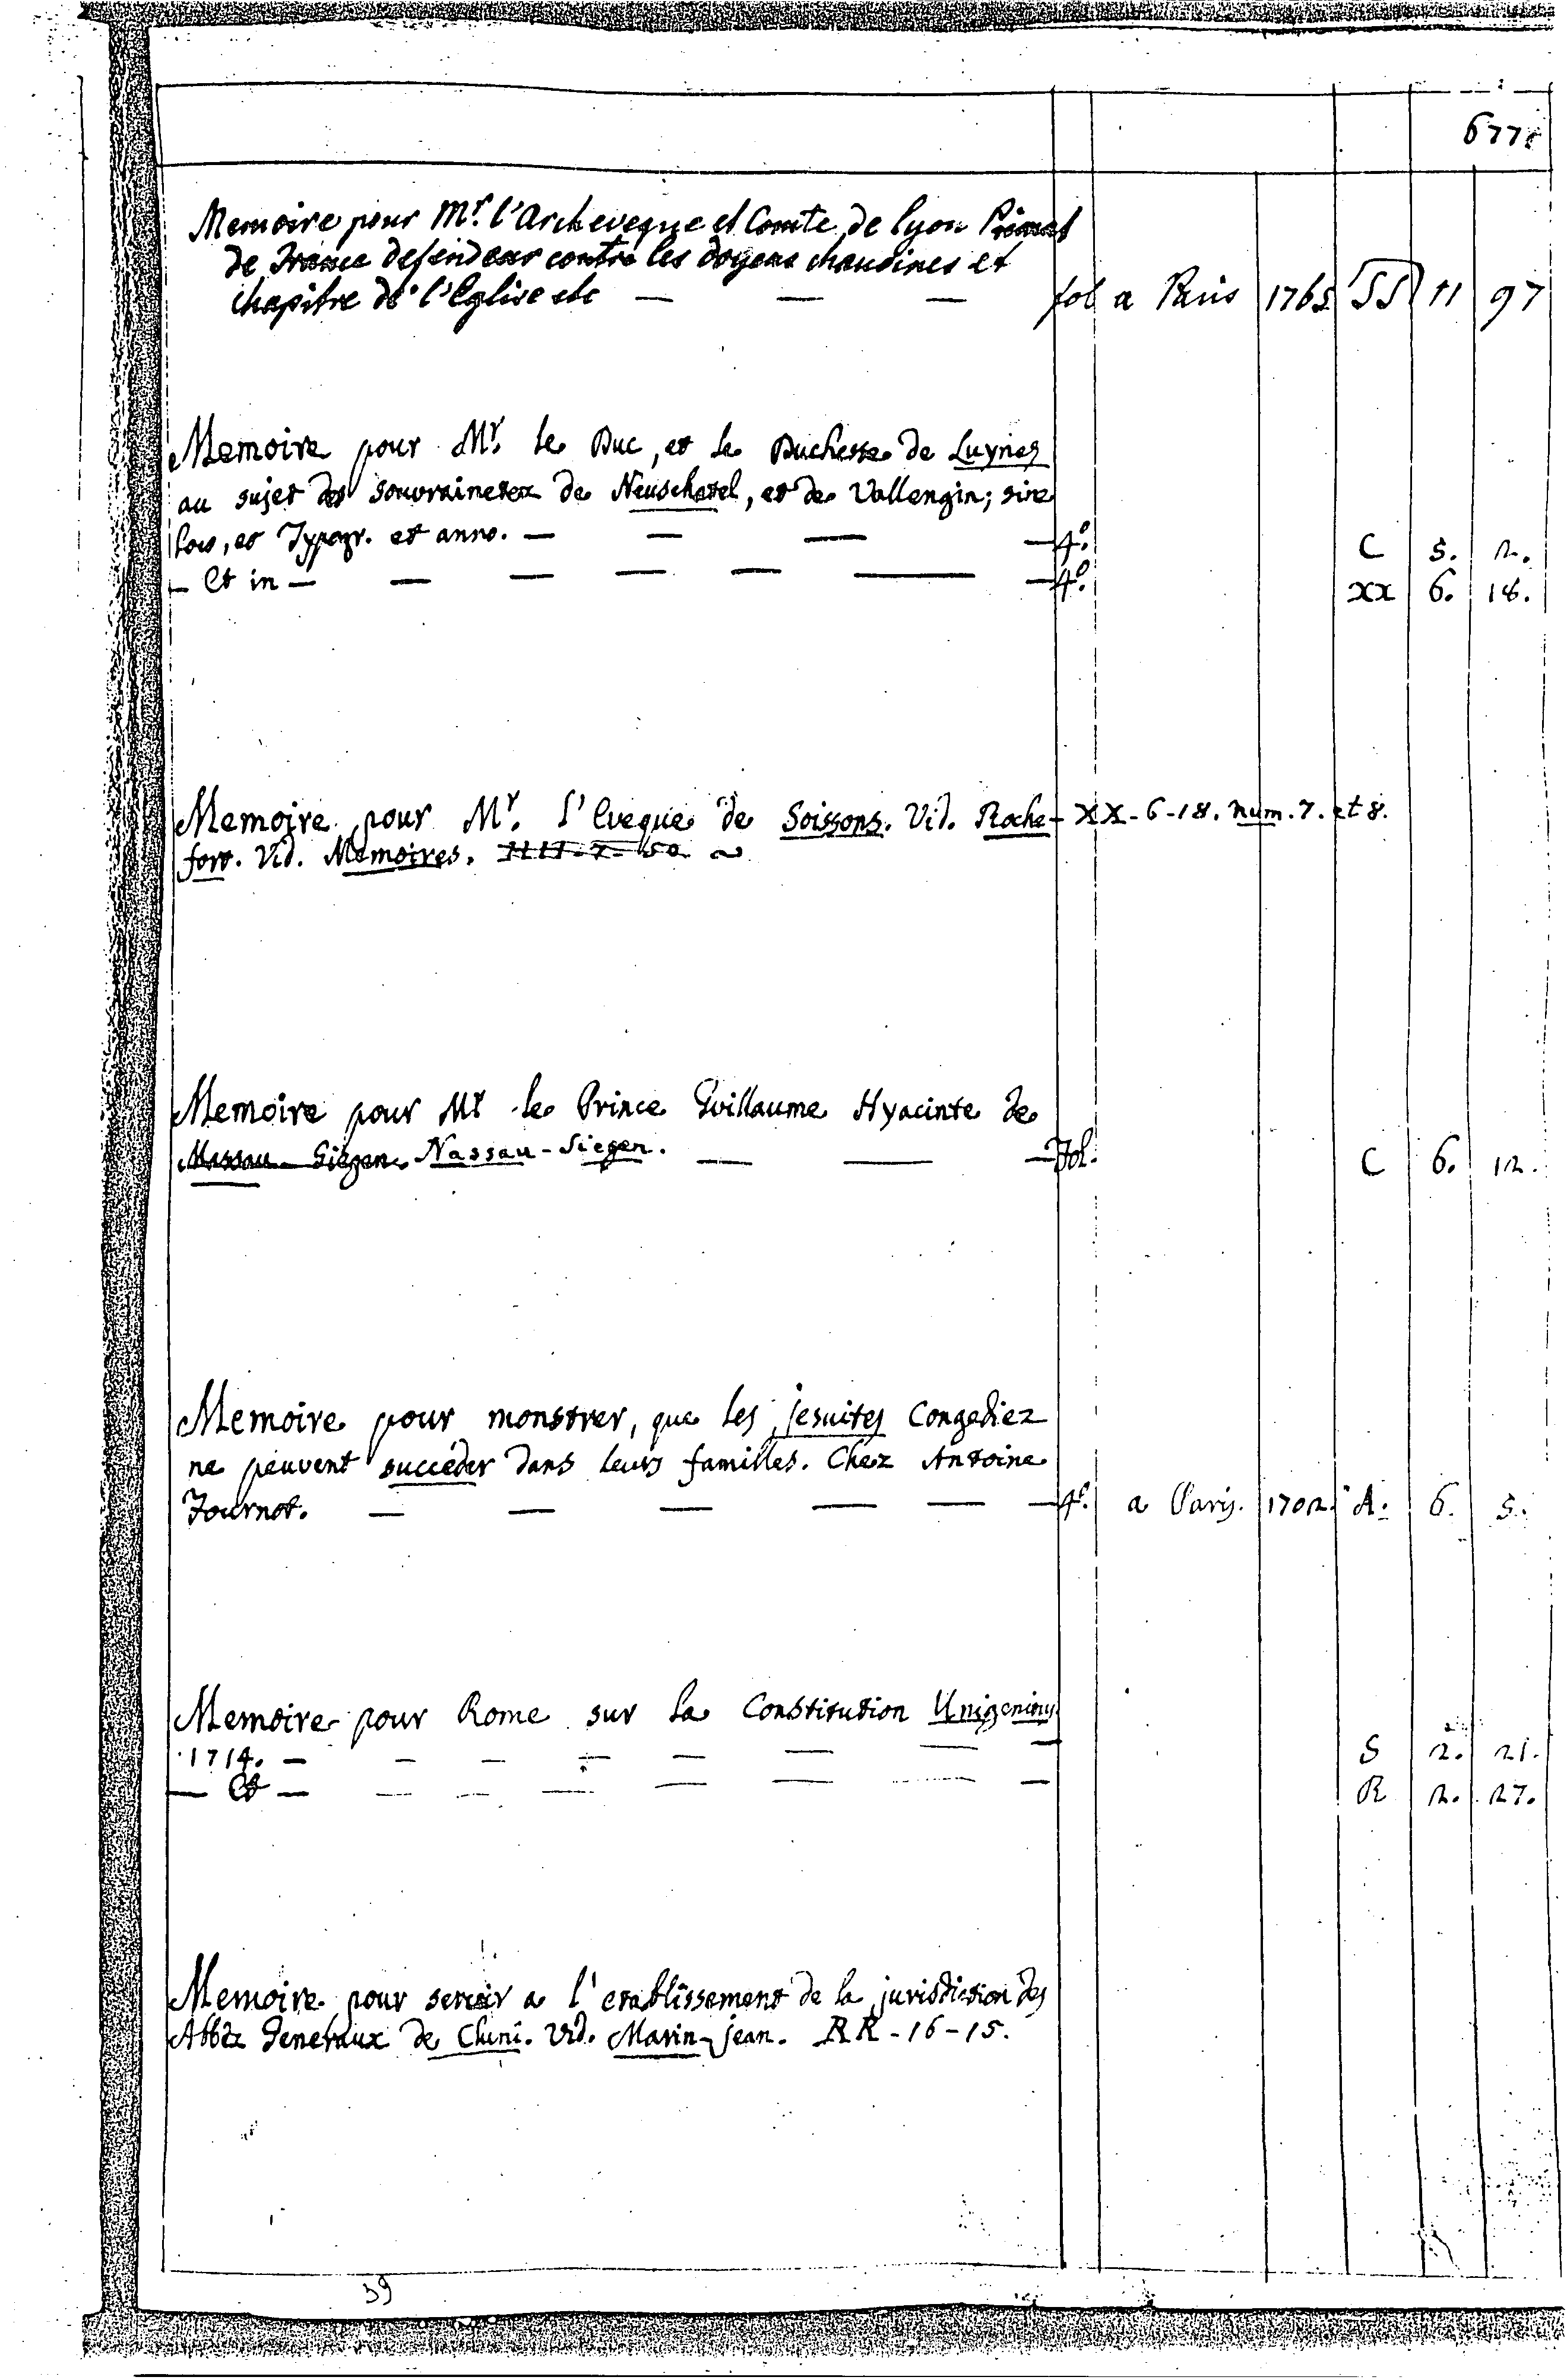 677
Memoire pour Mr. l'Archeveque et Comte de lyon Primat
de France defendeur contre les doyens chanoines et
chapitre de l'Eglise etc — — — fol a Paris 1765 SS 11 97
Memoire pour Mr. le Duc, et le Duchesse de Luynes
au sujet des souvrainetez de Neuschatel, et de Vallengin; sine
loco, et Typogr. et anno. — — — — 4.º C 5. 2.
— Et in — — — — — — — 4.º XX 6. 18.
Memoire pour Mr. l'Eveque de Soissons. Vid. Roche- XX-6-18. num. 7. et 8.
fort. Vid. Memoires.
Memoire pour Mr le Prince Guillaume Hyacinte de
Massau-Siegen. Nassau-Siegen. — — — Fol. C 6. 12.
Memoire pour monstrer, que les jesuites Congediez
ne peuvent succéder dans leurs familles. Chez Antoine
Fournot. — — — — — — 4.º a Paris. 1702. A. 6. 5.
Memoire pour Rome sur la Constitution Unigenitus
1714. — — — — — — — — S 2. 21.
— Et — — — — — — — — R 2. 27.
Memoire pour servir a l'etablissement de la jurisdiction des
Abbèz Generaux de Cluni. Vid. Marin-jean. RR-16-15.
39